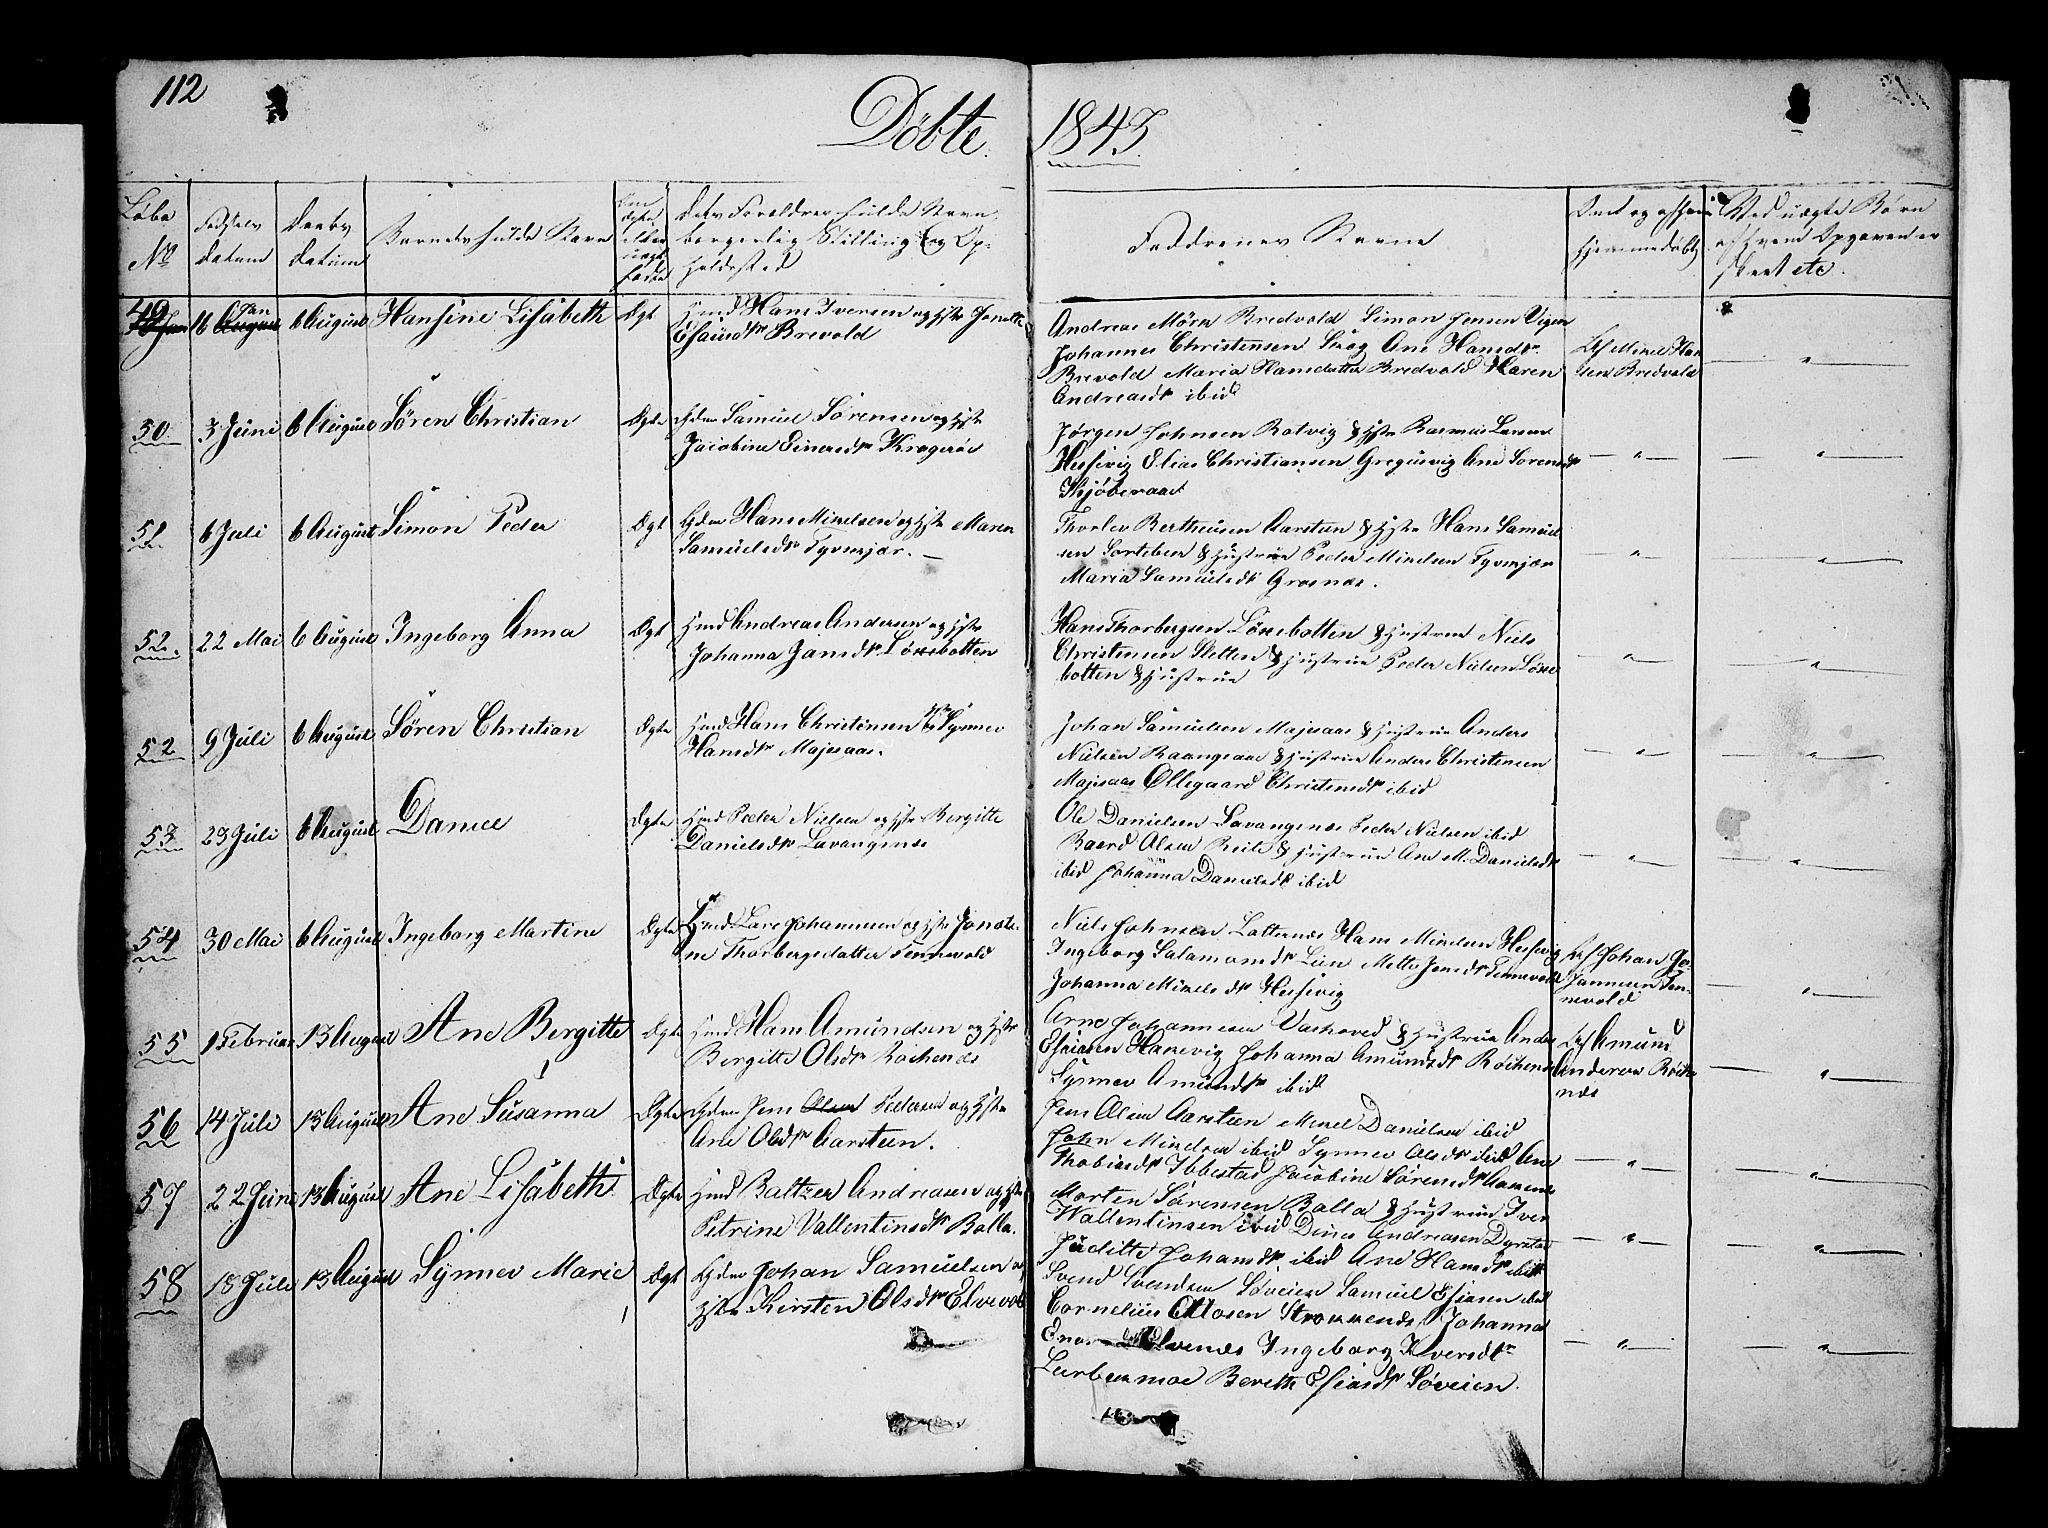 112
Döbte 1843
Löbe No
Fødsels datum
Daabs datum
Barnets fulde Navn
Om Ægte eller uægte fødte
Dets Forældres fulde Navn, borgerlig Stilling og Opholdssted
Faddrenes Navne
Om det og af hvem hjemmedøbt
Ved uægte Børn af hvem Opgaven er skeet etc.
49 16 Jan 6 August Hansine Lisabeth Ægt Hmd Hans Iversen og hstr Jonette
Esaiasdr Brevold
Andreas Mörk Bredvold Simon Jensen Vigen
Johannes Christensen Skog Ane Hansdtr
Brevold Maria Hansdatter Bredvold Karen
Andreasdr ibid
af Mikel Han
sen Bredvold
50 3 Juni 6 August Sören Christian Ægte Gdm Samuel Sörensen og hstr
Jacobine Einersdr Kragerøe
Jörgen Johnsen Rotvig & hstr Rasmus Larsen
Hessevig Elias Christiansen Gregusvig Ane Sörensdr
51 6 Juli 6 August Simon Peder Ægt Gdm Hans Mikelsen og hstr Maren
Samuelsdr Tyvmjær.
Thorlev Bertheusen Aarsteen & hstr Hans Samuel
sen & hustrue Peder Mikelsen Tyvmjær
Maria Samuelsdr Grasnæs.
52. 22 Mai 6 August Ingeborg Anna Ægt Hmd Andreas Andersen og hstr
Johanna Jansdr Lönsebotten
Hans Thorbergsen Lönsebotten & hustrue Niels
Christensen Sletten & hustrue Peder Nielsen Lönse
botten & hustrue
52 9 Juli 6 August Sören Christian Ægte Hmd Hans Christensen hstr Synnev
Hansdr Majesaas.
Johan Samuelsen Majesaas & hustrue Anders
Nielsen & hustrue Anders Christensen
Majesaas Ollegaard Christensdr ibid
53 23 Juli 6 August Daniel Ægte Hmd Peder Nielsen og hstr Bergitte
Danielsdr Lavangsnæs
Ole Danielsen Lavangsnæs Peder Nielsen ibid
Baard Olsen & hustrue Ane M. Danielsdr
ibid Johanna Danielsdr ibid
54 30 Mai 6 August Ingeborg Martine Ægte Hmd Lars Johannesen og hstr Joneta
ne Thorbergsdatter Tennevold
Niels Johnsen Lotternæs Hans Mikelsen Hessevig
Ingeborg Salamonsdr Lien Mette Jensdr Tennevold
Johanna Mikelsdr Hessevig
af Johan Jo
hannesen Ten
nevold
55 1 Februar 13 August Ane Bergitte Ægte Hmd Hans Amundsen og hstr
Bergitte Olsdr Röchenes
Arne Johannesen & hustrue Anders
Esaiasen Hanevig Johanna Amundsdr Röchenes
Synnev Amundsdr ibid
af Amund
Andersen Röche
næs
56 14 Juli 13 August Ane Susanna Ægte Gdm Jens Olsen Pedersen og hstr
Ane Olsdr Aarsteen.
Jens Olsen Aarsteen Mikel Danielsen ibid
John Mikelsen ibid Synnev Olsdr ibid Ane
Thobiasdr Ibbestad Jacobine Sörensdr
57 22 Juni 13 August Ane Lisabeth Ægte Hmd Baltzer Andreasen og hstr
Petrine Vallentinsdr Balla.
Morten Sörensen Balla & hustrue Iver
Wallentinsen ibid Dines Andreasen Dyrstad
Juditte Johansdr ibid Ane Hansdr ibid
58 18 Juli 13 August Synnev Marie Ægt Gdm Johan Samuelsen og
hstr Kirsten Olsdr Elvevold
Svend Svendsen Söveien Samuel Esiasen ibid
Cornelius Ottosen Strokkenes Johanna
Elvenæs Ingeborg Iversdr
Lurbakmoe Berethe Esiasdr Söveien.